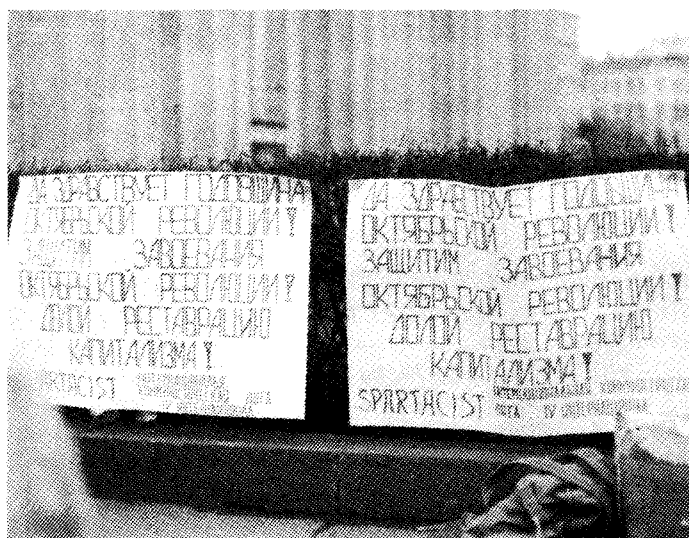 ДА ЗДРАВСТВУЕТ ГОДОВЩИНА
ОКТЯБРЬСКОЙ РЕВОЛЮЦИИ!
ЗАЩИТИМ ЗАВОЕВАНИЯ
ОКТЯБРЬСКОЙ РЕВОЛЮЦИИ!
ДОЛОЙ РЕСТАВРАЦИЮ
КАПИТАЛИЗМА!
SPARTACIST
ЛИГА
ДА ЗДРАВСТВУЕТ ГОДОВЩИНА
ОКТЯБРЬСКОЙ РЕВОЛЮЦИИ!
ЗАЩИТИМ ЗАВОЕВАНИЯ
ОКТЯБРЬСКОЙ РЕВОЛЮЦИИ!
ДОЛОЙ РЕСТАВРАЦИЮ
КАПИТАЛИЗМА!
SPARTACIST
ЛИГА IV ИНТЕРНАЦИОНАЛ